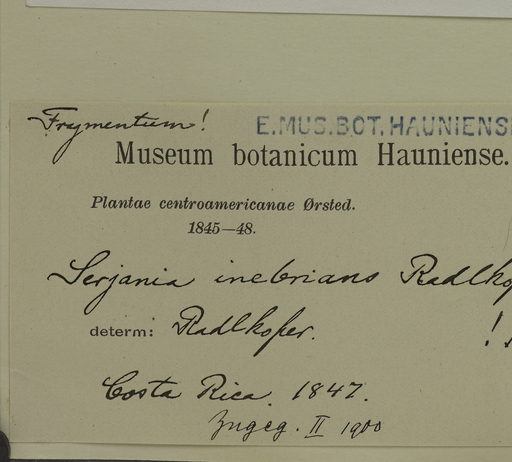 Frymentum!
E.MUS.BOT.HAUNIENS
Museum botanicum Hauniense.
Plantae centroamericanae Ørsted.
1845—48.
Serjania inebrians Radlko
determ: Radlkofer. !
Costa Rica. 1847.
II 1900